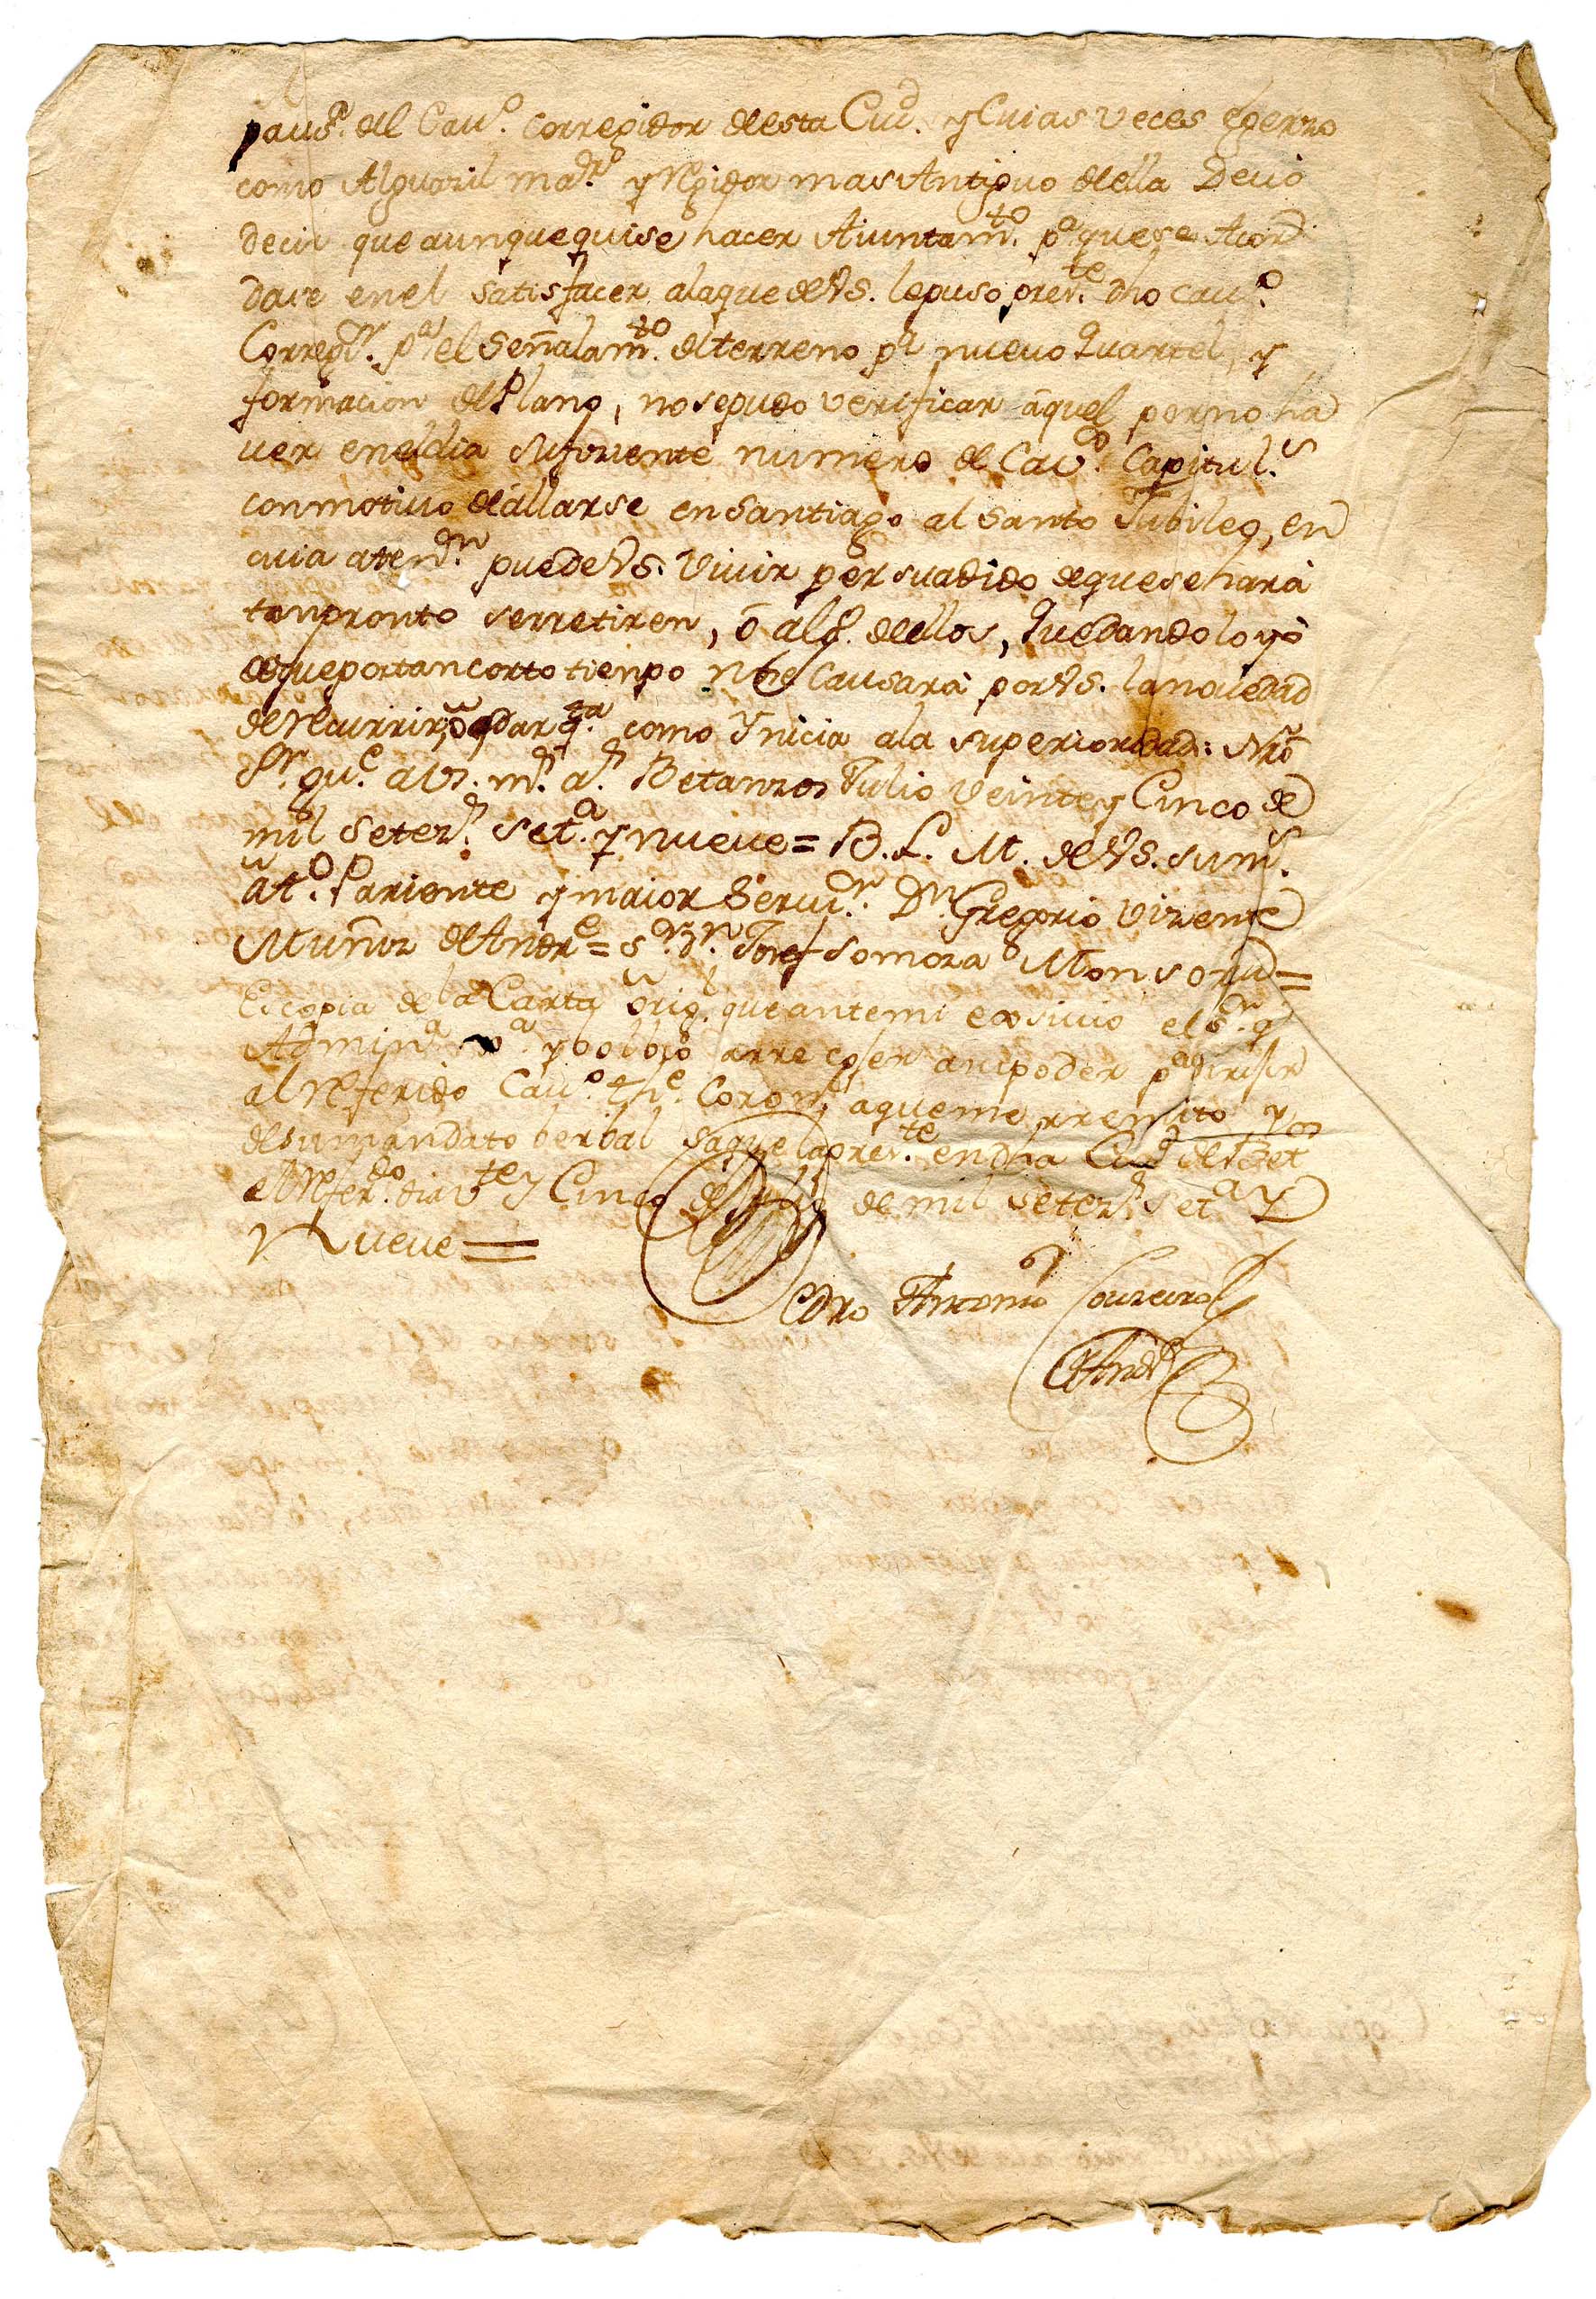 paus.ª del Cau.º corregidor de esta Ciu.d y Cuias veces egerzo
como Alguazil ma.or y Rexidor mas Antiguo de ella Deuo
decir que aunque quise hacer Aiuntam.to p.a que se Acor
dase en el satisfacer ala que de VS. le puso pres.te dho Cau.º
Correg.or p.a el Señalam.to del terreno p.a nuevo Quartel, y
formacion del Plano, no se pudo verificar àquel por no ha
uer en el dia sufiziente numero de Cav.os Capitul.s
con motiuo de àllarse en Santiago al Santo Jubileo, en
cuia aten.on puede VS. Viuir persuadido de que se harà
tan pronto se rretiren, ò alg.º de ellos, Quedandolo yò
de que por tan corto tienpo no se Causarà por VS. la nouedad
de Recurrir, ò dar q.ta como Ynicia ala superioridad: Nrô
S.r gu.e a VS. m.s a.s Betanzos Julio Veinte y Cinco de
mil setez.s set.a y nueve = B. L. M. de VS. su m.s
at.º Pariente y maior Seruid.r D.n Gregorio Vizente
Muñoz de Andr.e = S.r D.n Josef Somoza Monsoriu =
Es copia de la Carta orig.l que ante mi exsiuio el S.r q.e
Admin.a y bolbió arrecojer a su poder p.a dirijir
al Referido Cau.º Th.e Coron.l a que me rremito y
de su mandato berbal saque la pres.te en dha Ciu.d de Bet.os
el Refer.do dia v.te y Cinco de Julio de mil setez.s set.a y
Nueve =
Pedro Antonio Loureiro
Andr.e